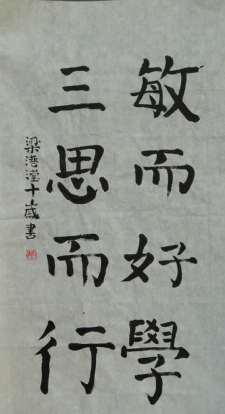 敏而好學
三思而行
梁港瀅十歲書